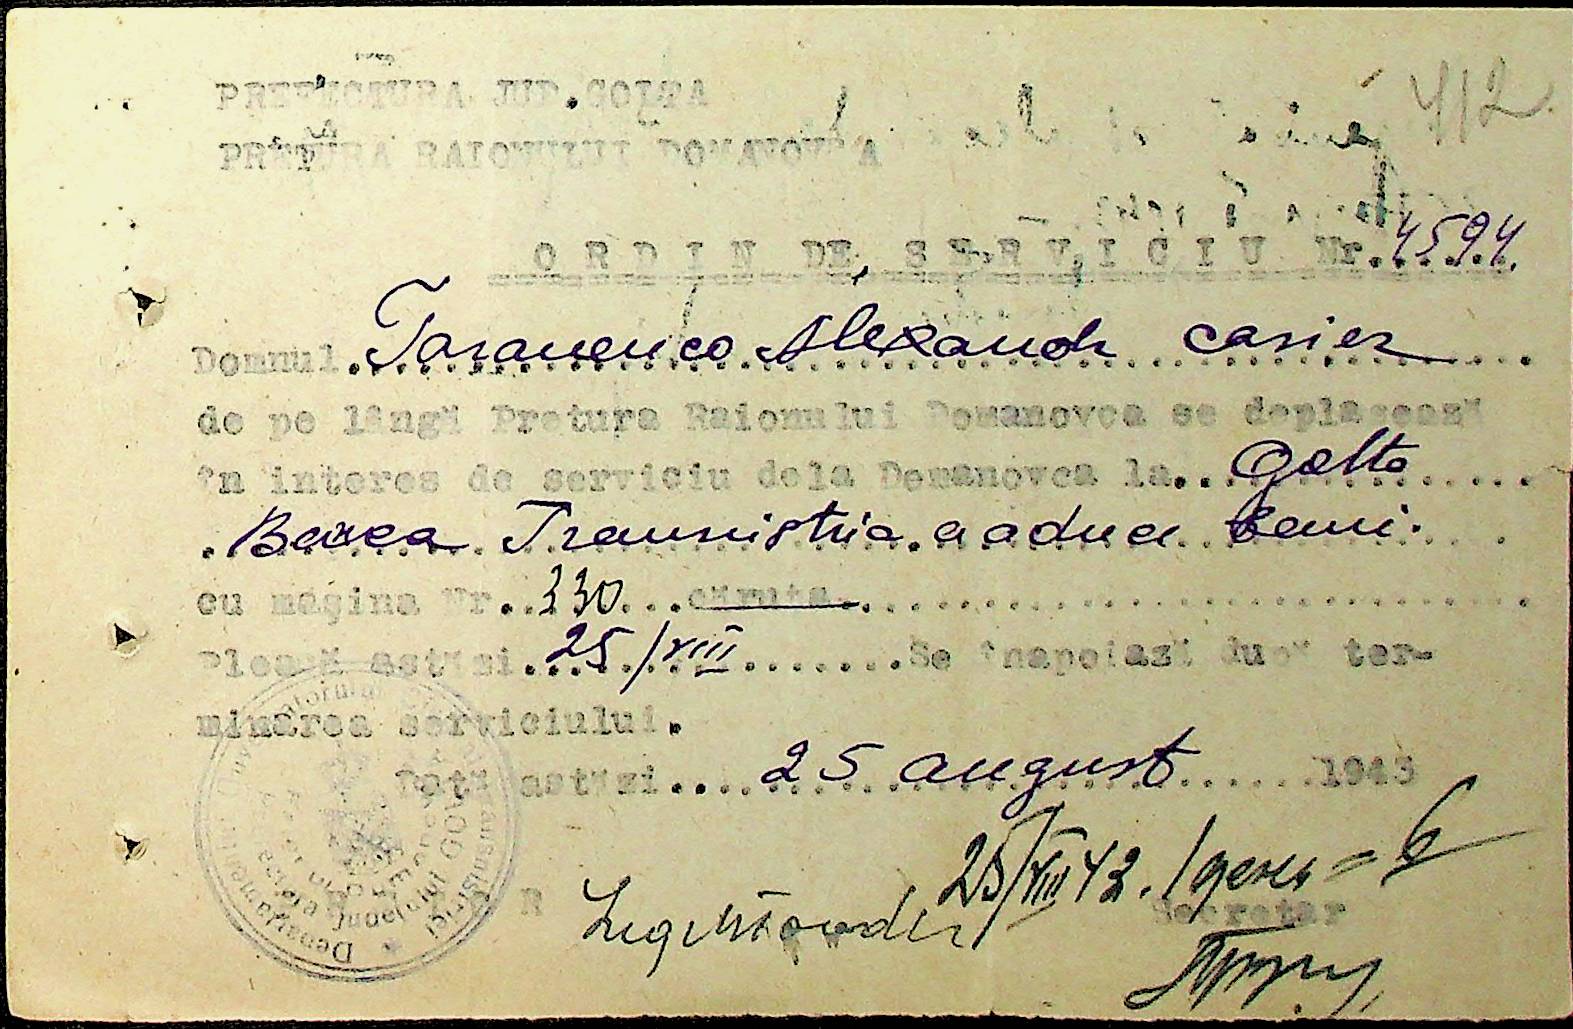 412
PREFECTURA JUD.GOLTA
PRETURA RAIONULUI DOMANOVCA
ORDIN DE SERVICIU Nr.4594.
Domnul Taranenco Alexandr casier
de pe lângă Pretura Raionului Domanovca se deplasează
în interes de serviciu dela Domanovca la.. Golta
Banca Transnistria a aduce bani.
cu mașina Nr. 330 căruța
Pleacă astăzi 25/VIII Se înapoiază după ter-
minarea serviciului.
Dată astăzi 25 august 1943
25/VIII 43. 1 день =
Secretar